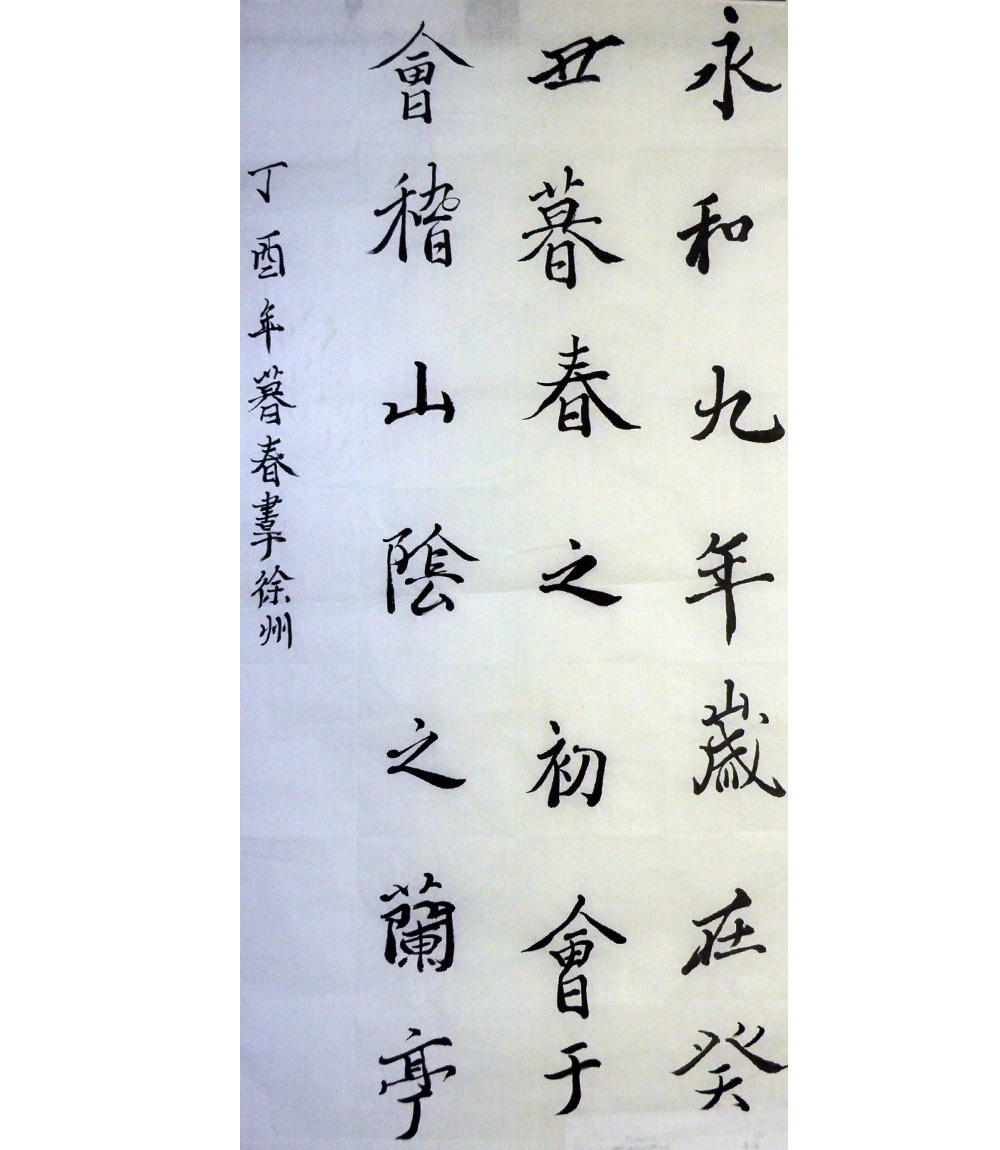 永和九年歲在癸
丑暮春之初會于
會稽山陰之蘭亭
丁酉年暮春書于徐州